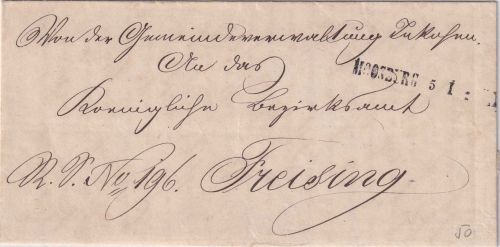 Von der Gemeindeverwaltung Inkofen.
An das
MOOSBURG 5 1
Koenigliche Bezirksamt
R. S. No 196. Freising.
50